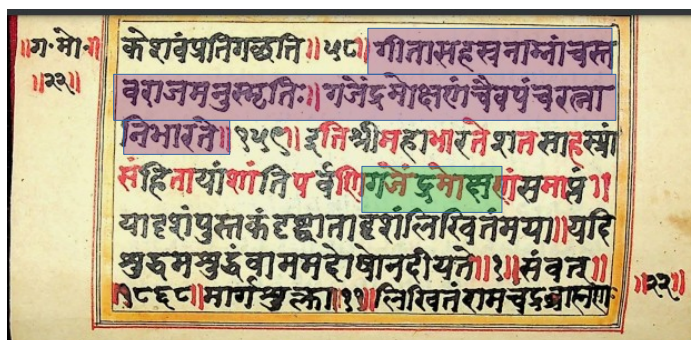 ॥ग॰मो॰ग
॥२२॥
केशवंप्रतिगछति॥५८॥गीतासहस्रनाम्नांचस्त
वराजमनुस्मृतिः॥गजेंद्रमोक्षणंचैवपंचरत्ना
निभारते॥१५९॥इतिश्रीमहाभारतेशतसाहस्र्यां
संहितायांशांतिपर्वणिगजेंद्रमोक्षणंसमाप्तं॥
यादृशंपुस्तकंदृष्ट्वातादृशंलिखितंमया॥यदि
शुद्धमशुद्धंवाममदोषोनदीयते॥१॥संवत्॥
॥१८६८॥मार्गशुक्ला॥११॥लिखितंरामचंद्रब्राह्मण
॥२२॥